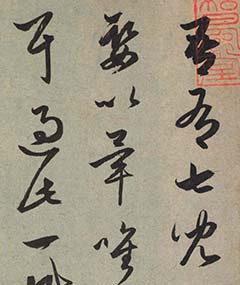 吾有七兒
娶以畢唯
耳過此一